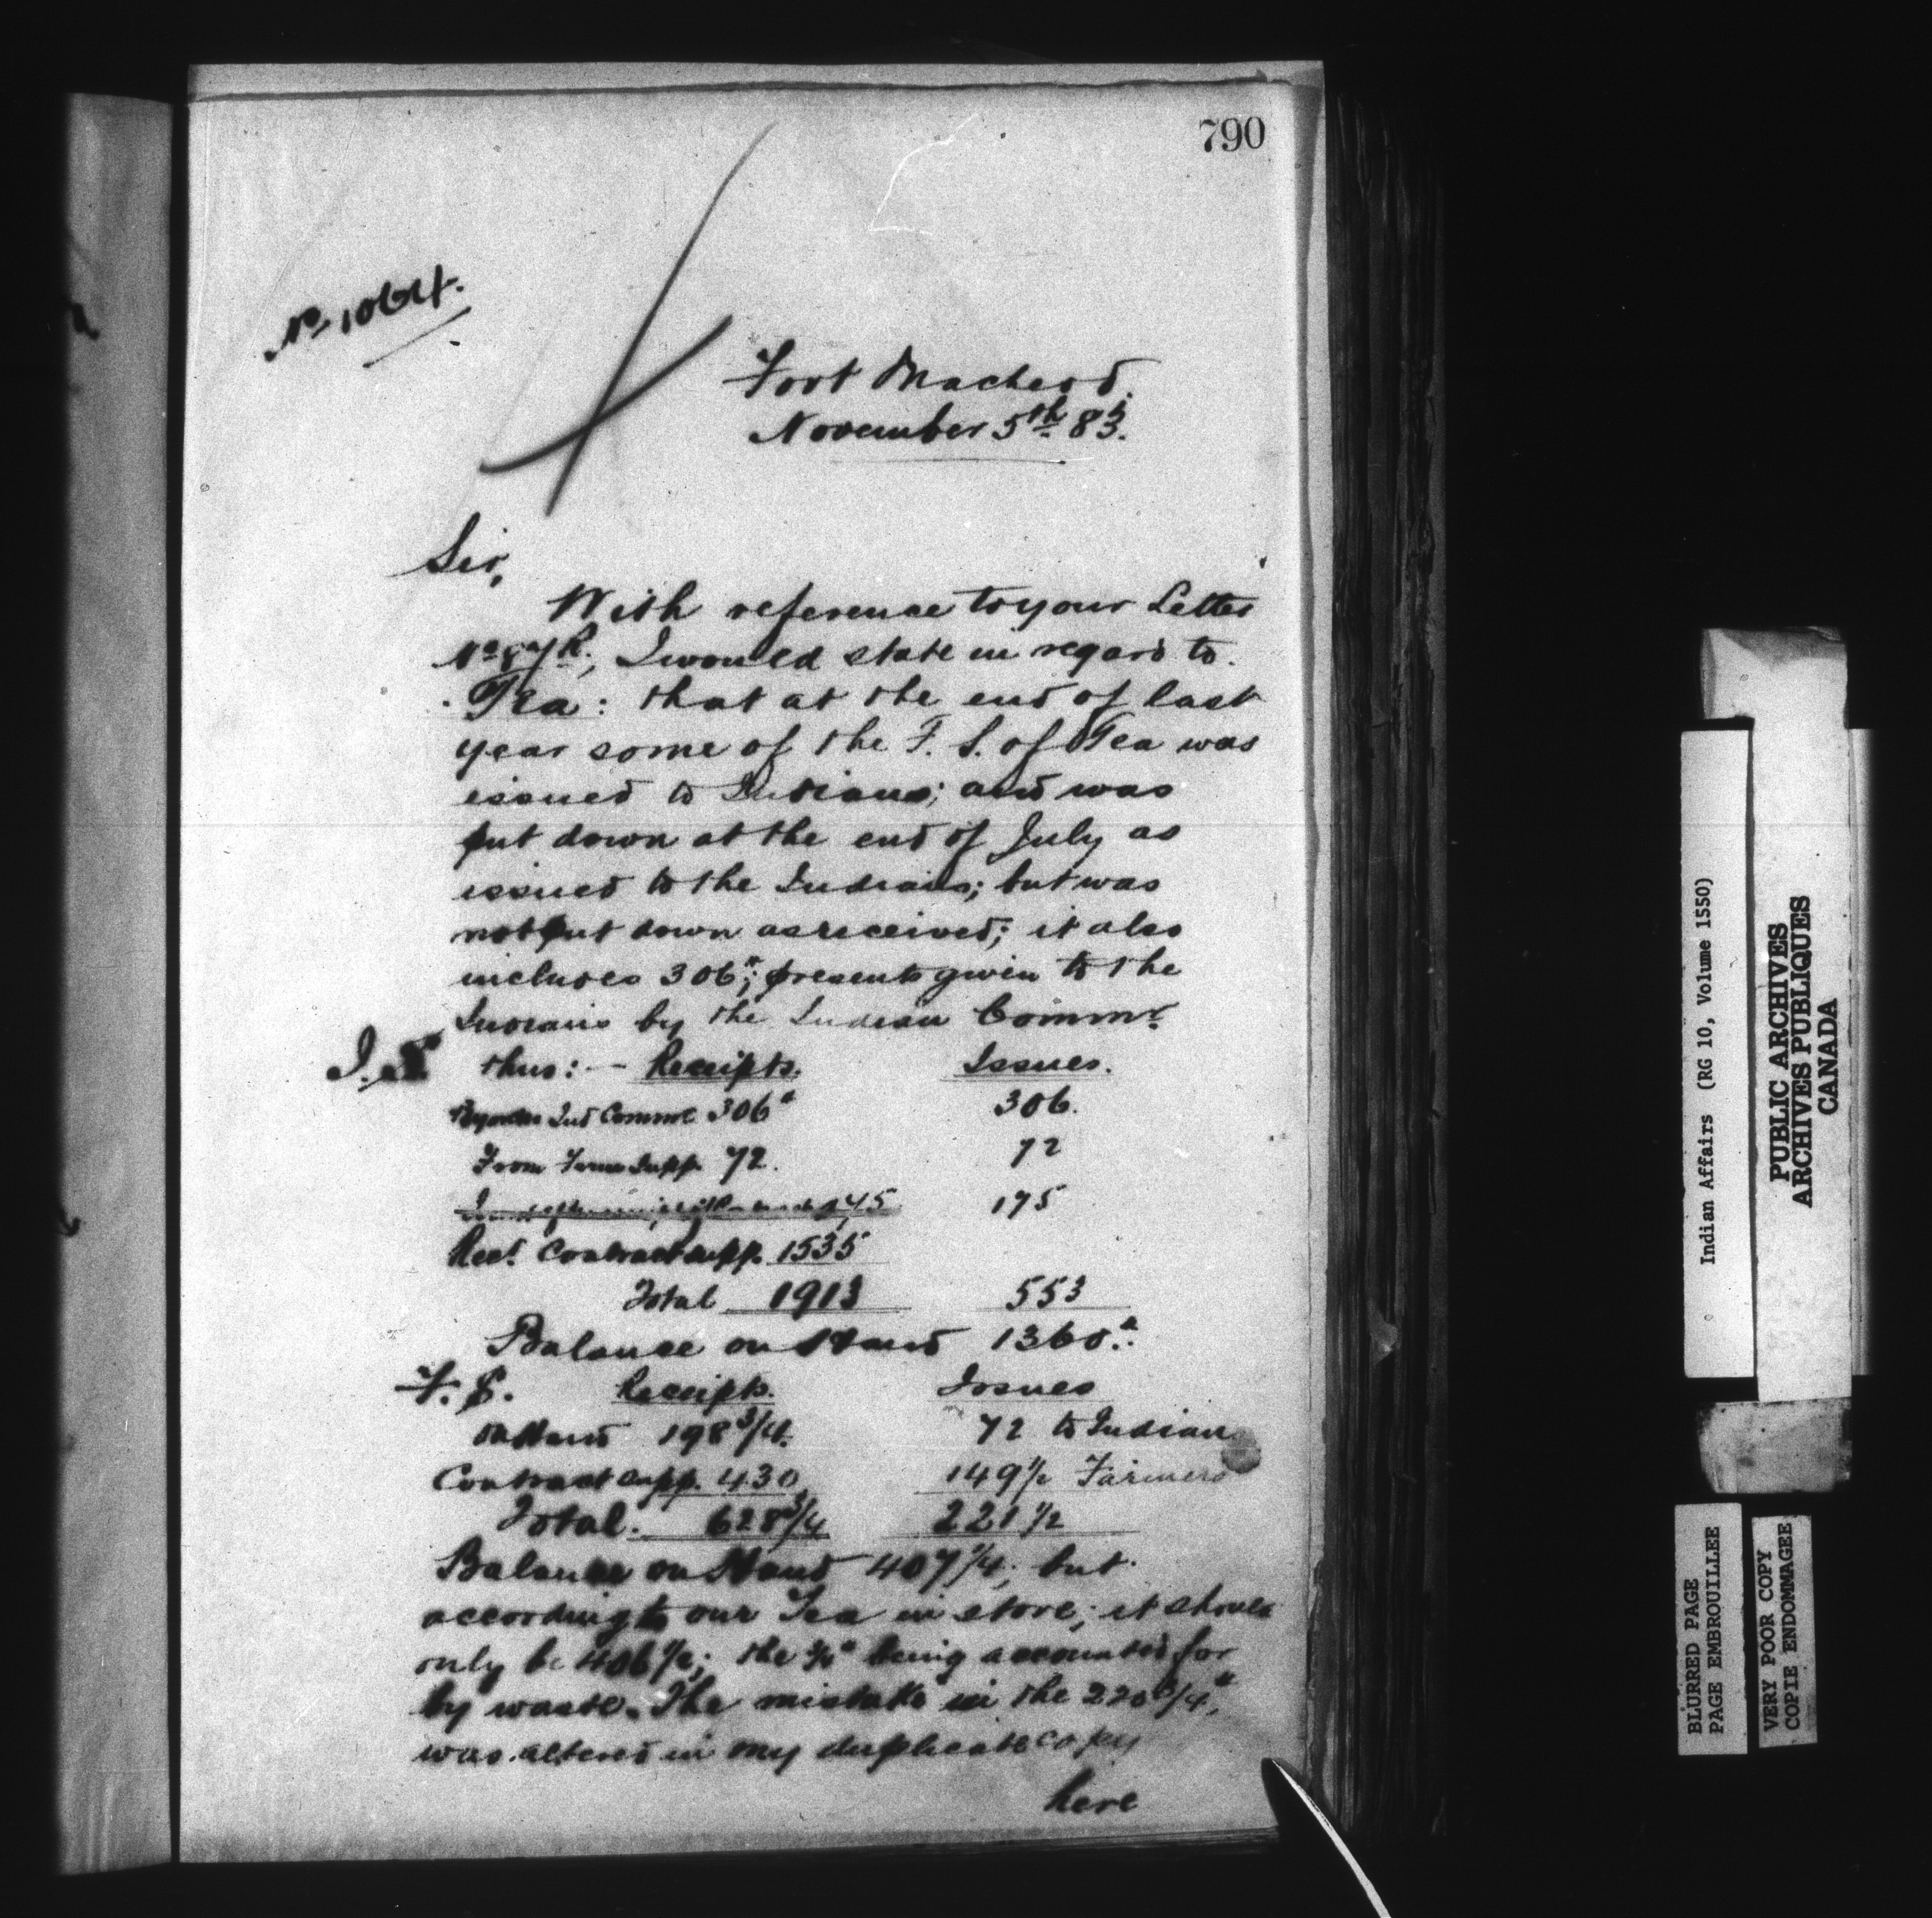 790
No 1064.
Fort Macleod.
November 5th 83.
Sir,
With reference to your Letter
I would state in regard to
Tea: that at the end of last
year some of the F. S. of Tea was
issued to Indians; and was
put down at the end of July as
issued to the Indians; but was
not put down as received; it also
includes 306#; presents given to the
Indians by the Indian Commr
I.S thus:— Receipts. Issues.
Ind Commr 306# 306.
From Farm Supp. 72. 72
45 175
Rect. Contract supp. 1535
Total 1913 553
Balance on Hand 1360#.
F. S. Receipts. Issues
On Hand 198 3/4. 72 to Indians
Contract supp. 430 149 1/2 Farmers
Total. 628 3/4 221 1/2
Balance on Hand 407 1/4; but
according to our Tea in store; it should
only be 406 1/2; the 3/4# being accounted for
by waste. The mistake in the 220 3/4#,
was altered in my duplicate copy
here
Indian Affairs (RG 10, Volume 1550)
PUBLIC ARCHIVES
ARCHIVES PUBLIQUES
CANADA
BLURRED PAGE
PAGE EMBROUILLEE
VERY POOR COPY
COPIE ENDOMMAGEE